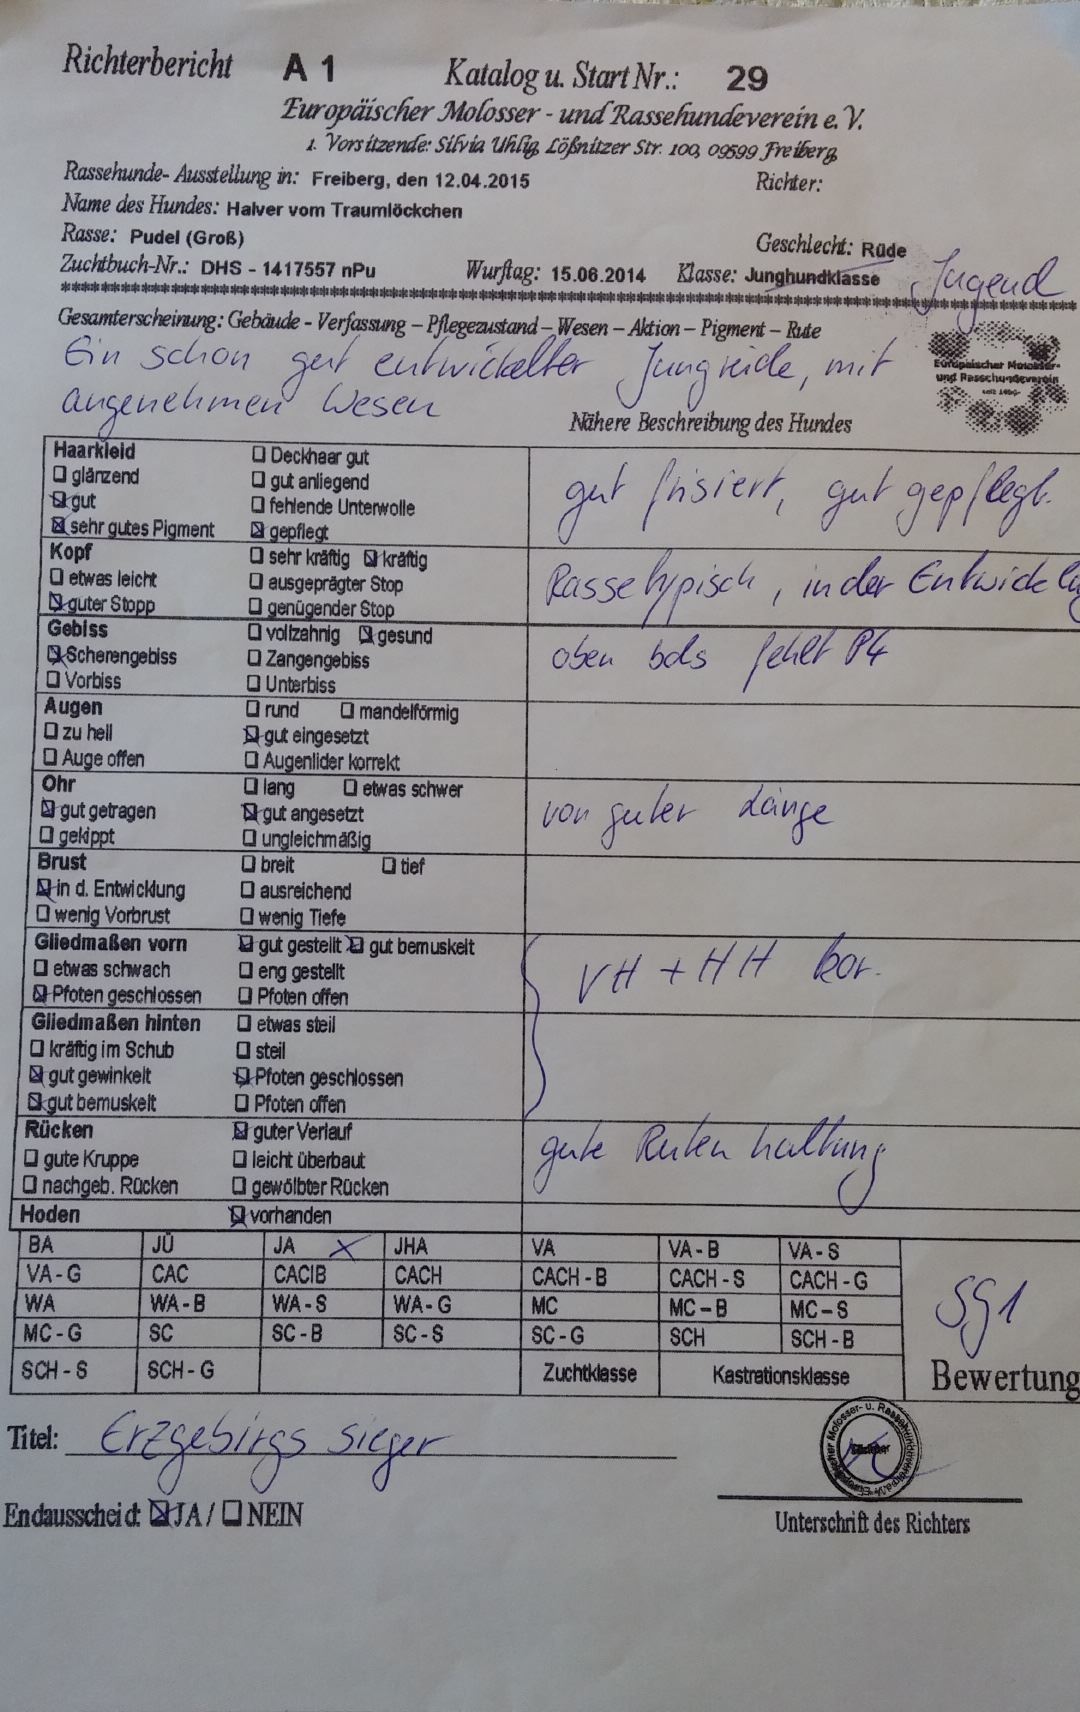 Richterbericht A 1 Katalog u. Start Nr.: 29
Europäischer Molosser - und Rassehundeverein e. V.
1. Vorsitzende: Silvia Uhlig, Lößnitzer Str. 100, 09599 Freiberg
Rassehunde- Ausstellung in: Freiberg, den 12.04.2015 Richter:
Name des Hundes: Halver vom Traumlöckchen
Rasse: Pudel (Groß) Geschlecht: Rüde
Zuchtbuch-Nr.: DHS - 1417557 nPu Wurftag: 15.06.2014 Klasse: Junghundklasse Jugend
Gesamterscheinung: Gebäude - Verfassung – Pflegezustand – Wesen – Aktion – Pigment – Rute
Ein schon gut entwickelter Jungrüde, mit
angenehmen Wesen
Europäischer Molosser-
und Rassehundeverein
Nähere Beschreibung des Hundes
Haarkleid ☐ Deckhaar gut
☐ glänzend ☐ gut anliegend
☒ gut ☐ fehlende Unterwolle
☒ sehr gutes Pigment ☒ gepflegt
gut frisiert, gut gepflegt.
Kopf ☐ sehr kräftig ☒ kräftig
☐ etwas leicht ☐ ausgeprägter Stop
☒ guter Stopp ☐ genügender Stop
Rassetypisch, in der Entwicklung
Gebiss ☐ vollzahnig ☒ gesund
☒ Scherengebiss ☐ Zangengebiss
☐ Vorbiss ☐ Unterbiss
oben bds fehlt P4
Augen ☐ rund ☐ mandelförmig
☐ zu hell ☒ gut eingesetzt
☐ Auge offen ☐ Augenlider korrekt
Ohr ☐ lang ☐ etwas schwer
☒ gut getragen ☒ gut angesetzt
☐ gekippt ☐ ungleichmäßig
von guter Länge
Brust ☐ breit ☐ tief
☒ in d. Entwicklung ☐ ausreichend
☐ wenig Vorbrust ☐ wenig Tiefe
Gliedmaßen vorn ☒ gut gestellt ☒ gut bemuskelt
☐ etwas schwach ☐ eng gestellt
☒ Pfoten geschlossen ☐ Pfoten offen
VH + HH kor.
Gliedmaßen hinten ☐ etwas steil
☐ kräftig im Schub ☐ steil
☒ gut gewinkelt ☒ Pfoten geschlossen
☒ gut bemuskelt ☐ Pfoten offen
Rücken ☒ guter Verlauf
☐ gute Kruppe ☐ leicht überbaut
☐ nachgeb. Rücken ☐ gewölbter Rücken
gute Rutenhaltung
Hoden ☒ vorhanden
BA JÜ JA X JHA VA VA - B VA - S
VA - G CAC CACIB CACH CACH - B CACH - S CACH - G
WA WA - B WA - S WA - G MC MC – B MC – S
MC - G SC SC - B SC - S SC - G SCH SCH - B
SCH - S SCH - G Zuchtklasse Kastrationsklasse
SG1
Bewertung
Titel: Erzgebirgs sieger
Endausscheid: ☒ JA / ☐ NEIN
Unterschrift des Richters